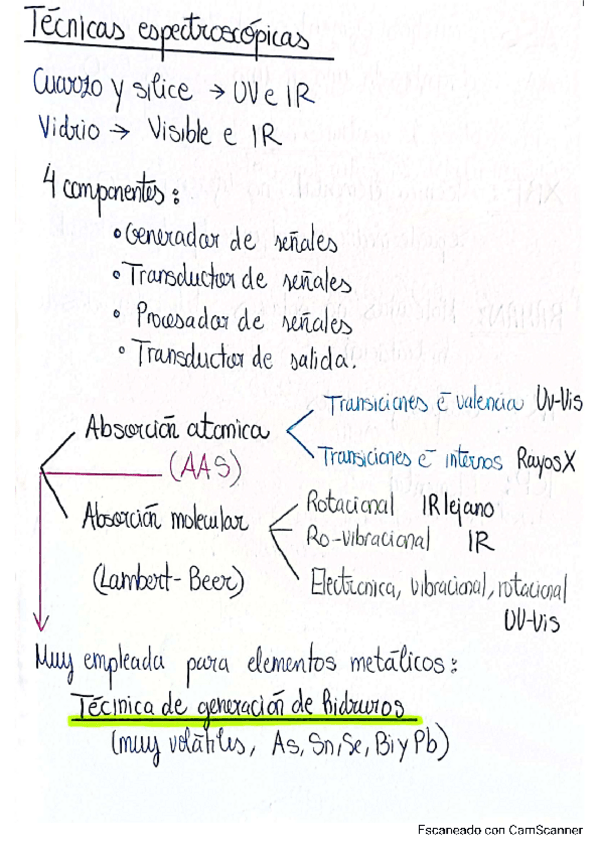 Técnicas espectroscópicas
Cuarzo y sílice → UV e IR
Vidrio → Visible e IR
4 componentes:
• Generador de señales
• Transductor de señales
• Procesador de señales
• Transductor de salida.
Absorción atomica
(AAS)
Transiciones e⁻ valencia UV-Vis
Transiciones e⁻ internos Rayos X
Absorción molecular
(Lambert-Beer)
Rotacional IR lejano
Ro-vibracional IR
Electrónica, vibracional, rotacional
UV-Vis
Muy empleada para elementos metálicos:
Técinica de generación de hidruros
(muy volátiles, As, Sn, Se, Bi y Pb)
Escaneado con CamScanner